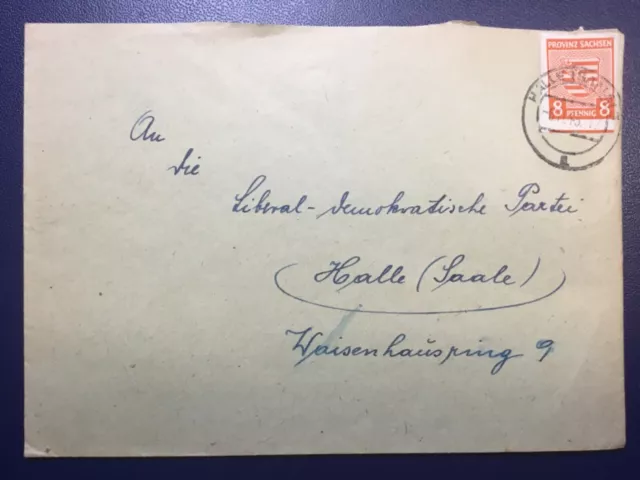 PROVINZ SACHSEN
8 PFENNIG 8
HALLE (SAALE)
a
An
die
Liberal-demokratische Partei
Halle (Saale)
Waisenhausring 9